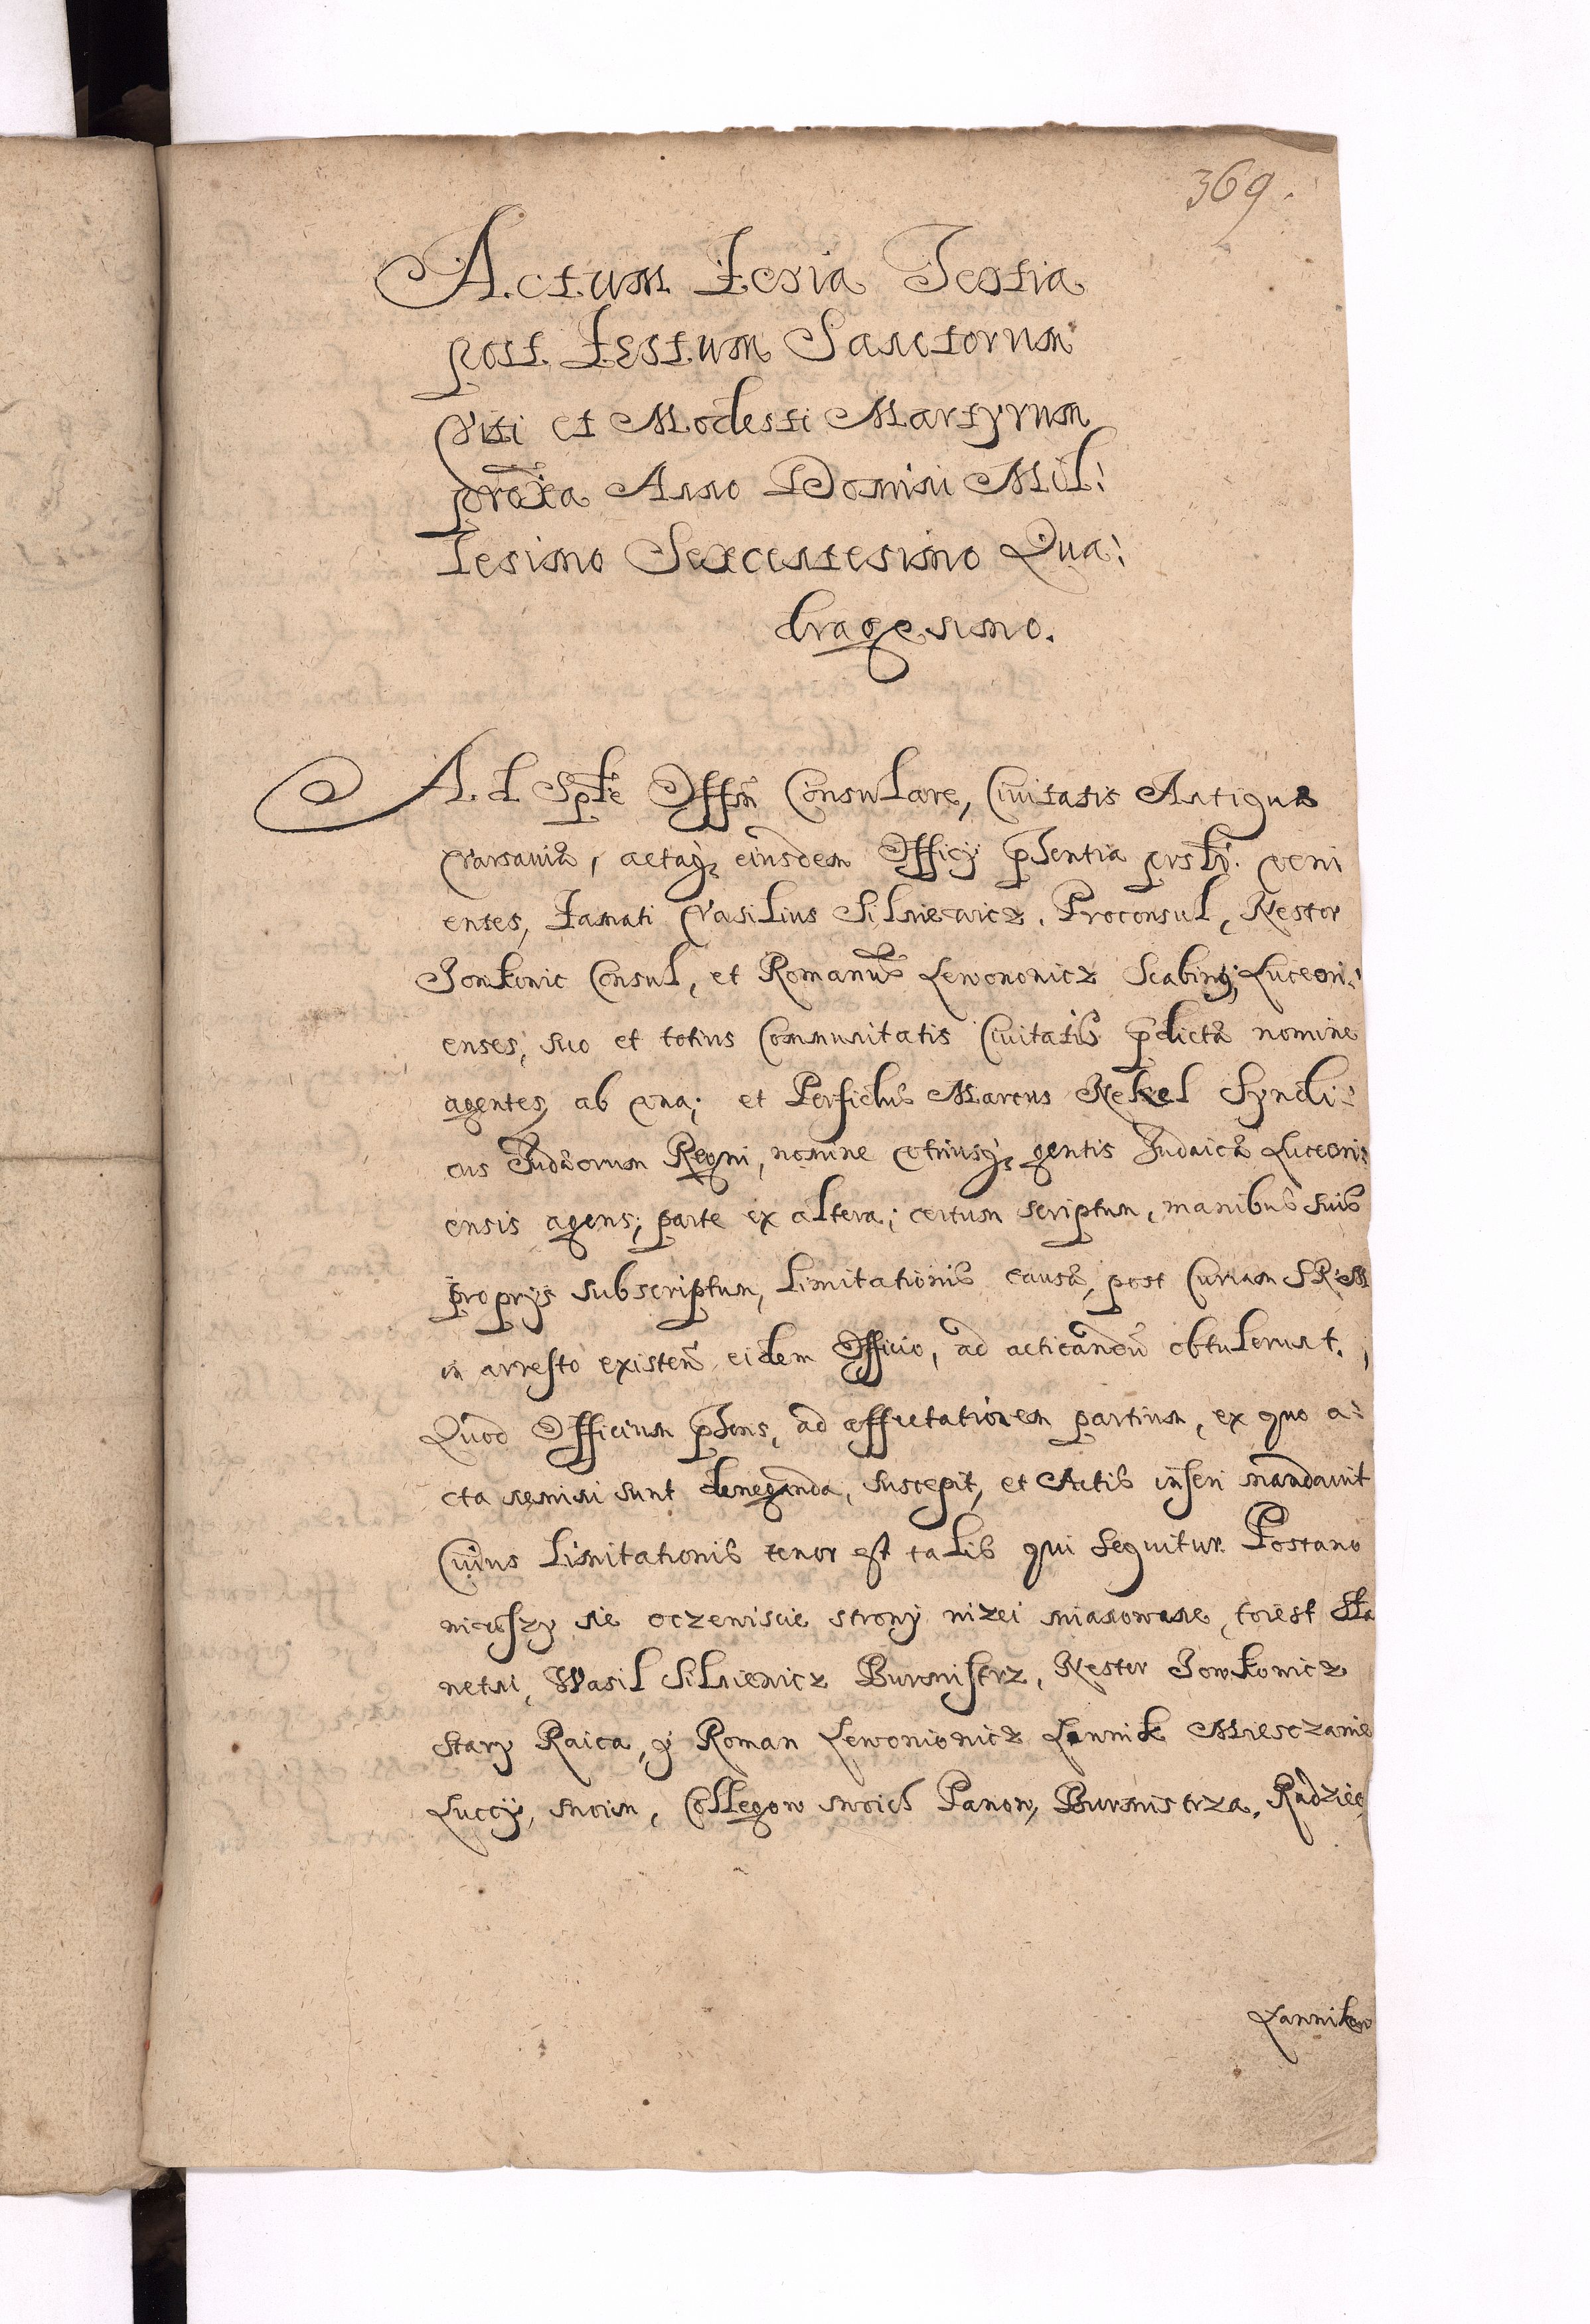 369.
Actum Feria Tertia
post Festum Sanctorum
Viti et Modesti Martyrum
proxa Anno Domini Mil:
lesimo Sexcentesimo Qua:
dragesimo.
Ad Sple Offm Consulare, Civitatis Antiquæ
Varsaviæ, actaq; eiusdem Officij pñsentia prsñ. veni
entes, Famati Vasilius Silniewicz, Proconsul, Nestor
Jonkonic Consul, et Romanus Lewononicz Scabing, Luceori:
enses, suo et totius Communitatis Civitatis pdictæ nomine
agentes, ab una; et Perfidus Marcus Nekel Syndi:
cus Judæorum Regni, nomine totiusq; gentis Judaicæ Luceori:
ensis agens; parte ex altera; certum scriptum, manibus suis
proprijs subscriptum, limitationis causæ, post Curiam SRM
in arresto existeñ eidem Officio, ad acticandũ obtulerunt,
Quod Officium pñsens, ad affectationem partium, ex quo a:
cta nemini sunt deneganda, suscepit, et Actis inseri mandavit
Cuius limitationis tenor est talis qui sequitur. Postano
wiwszy sie oczewiscie strony nizei mianowane, toiest Sła
wetni, Wasil Silniewicz Burmistrz, Nestor Jowkowicz
stary Raica, y Roman Lewonionicz Lannik Miesczanie
Luccÿ, swoim, Collegow swoich Panow, Burmistrza, Radziec,
Lannikow